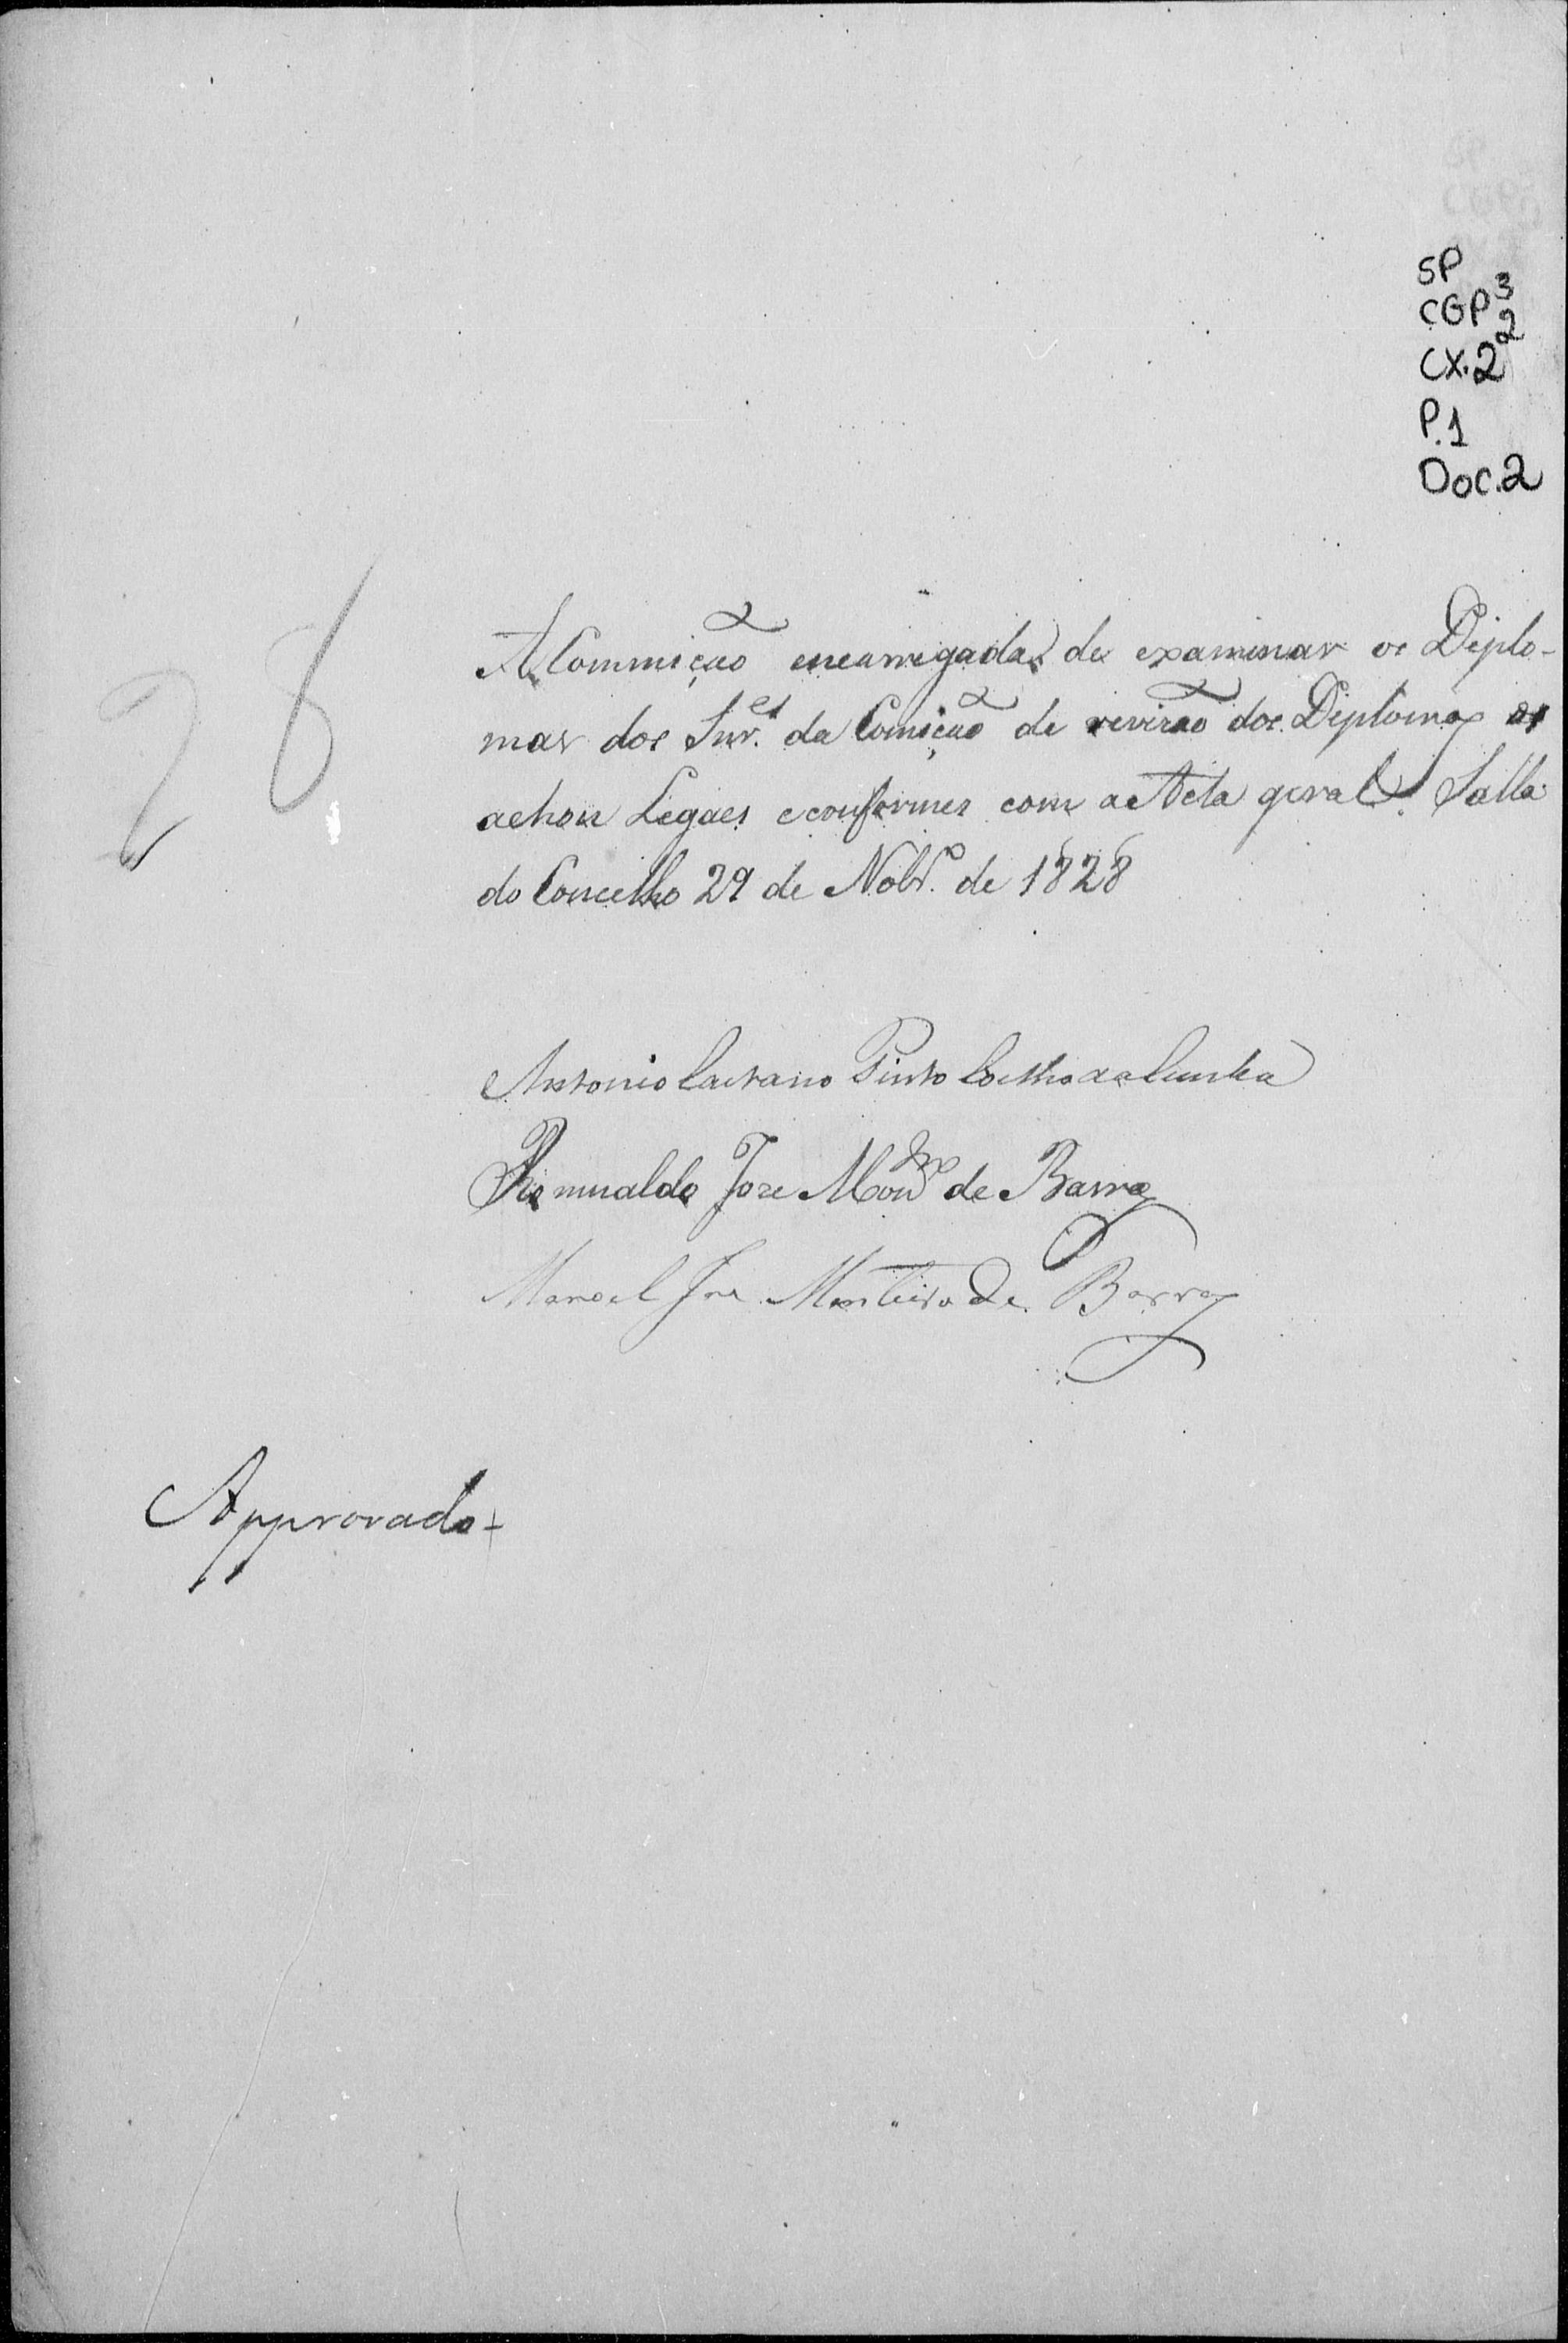 SP
CGP3
2
CX.2
P.1
Doc.2
28
A Commição encarregada de examinar os Diplo-
mas dos Snr.es da Comição de revizão dos Diplomas os
achou Legaes e conformes com a Acta geral. Salla
do Concelho 29 de Nobr.o de 1828
Antonio Caetano Pinto Coelho da Cunha
Romualdo Joze Montr.o de Barros
Manoel Joze Monteiro de Barros
Approvado